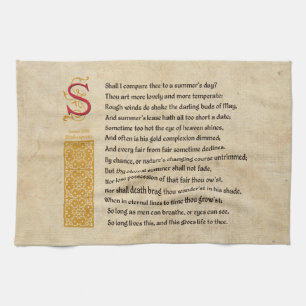 S
Shall I compare thee to a summer's day?
Thou art more lovely and more temperate:
Rough winds do shake the darling buds of May,
And summer's lease hath all too short a date;
Sometime too hot the eye of heaven shines,
And often is his gold complexion dimmed;
And every fair from fair sometime declines,
By chance, or nature's changing course untrimmed;
But thy eternal summer shall not fade,
Nor lose possession of that fair thou ow'st,
Nor shall death brag thou wander'st in his shade,
When in eternal lines to time thou grow'st;
So long as men can breathe, or eyes can see,
So long lives this, and this gives life to thee.